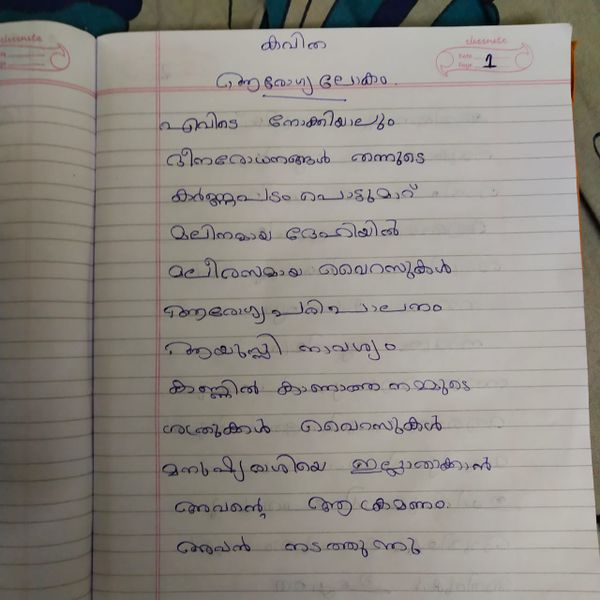 classmate
കവിത
classmate
Date
Page 1
ആരോഗ്യ ലോകം.
എവിടെ നോക്കിയാലും
ദീനരോധനങ്ങൾ നമ്മുടെ
കർണ്ണപടം പൊട്ടുമാറ്
മലിനമായ ദേഹിയിൽ
മലീരസമായ വൈറസുകൾ
ആരോഗ്യപരിപാലനം
ആയുസ്സി നാവശ്യം
കണ്ണിൽ കാണാത്ത നമ്മുടെ
ശത്രുക്കൾ വൈറസുകൾ
മനുഷ്യരാശിയെ ഇല്ലാതാക്കാൻ
അവന്റെ ആക്രമണം
അവൻ നടത്തുന്നു